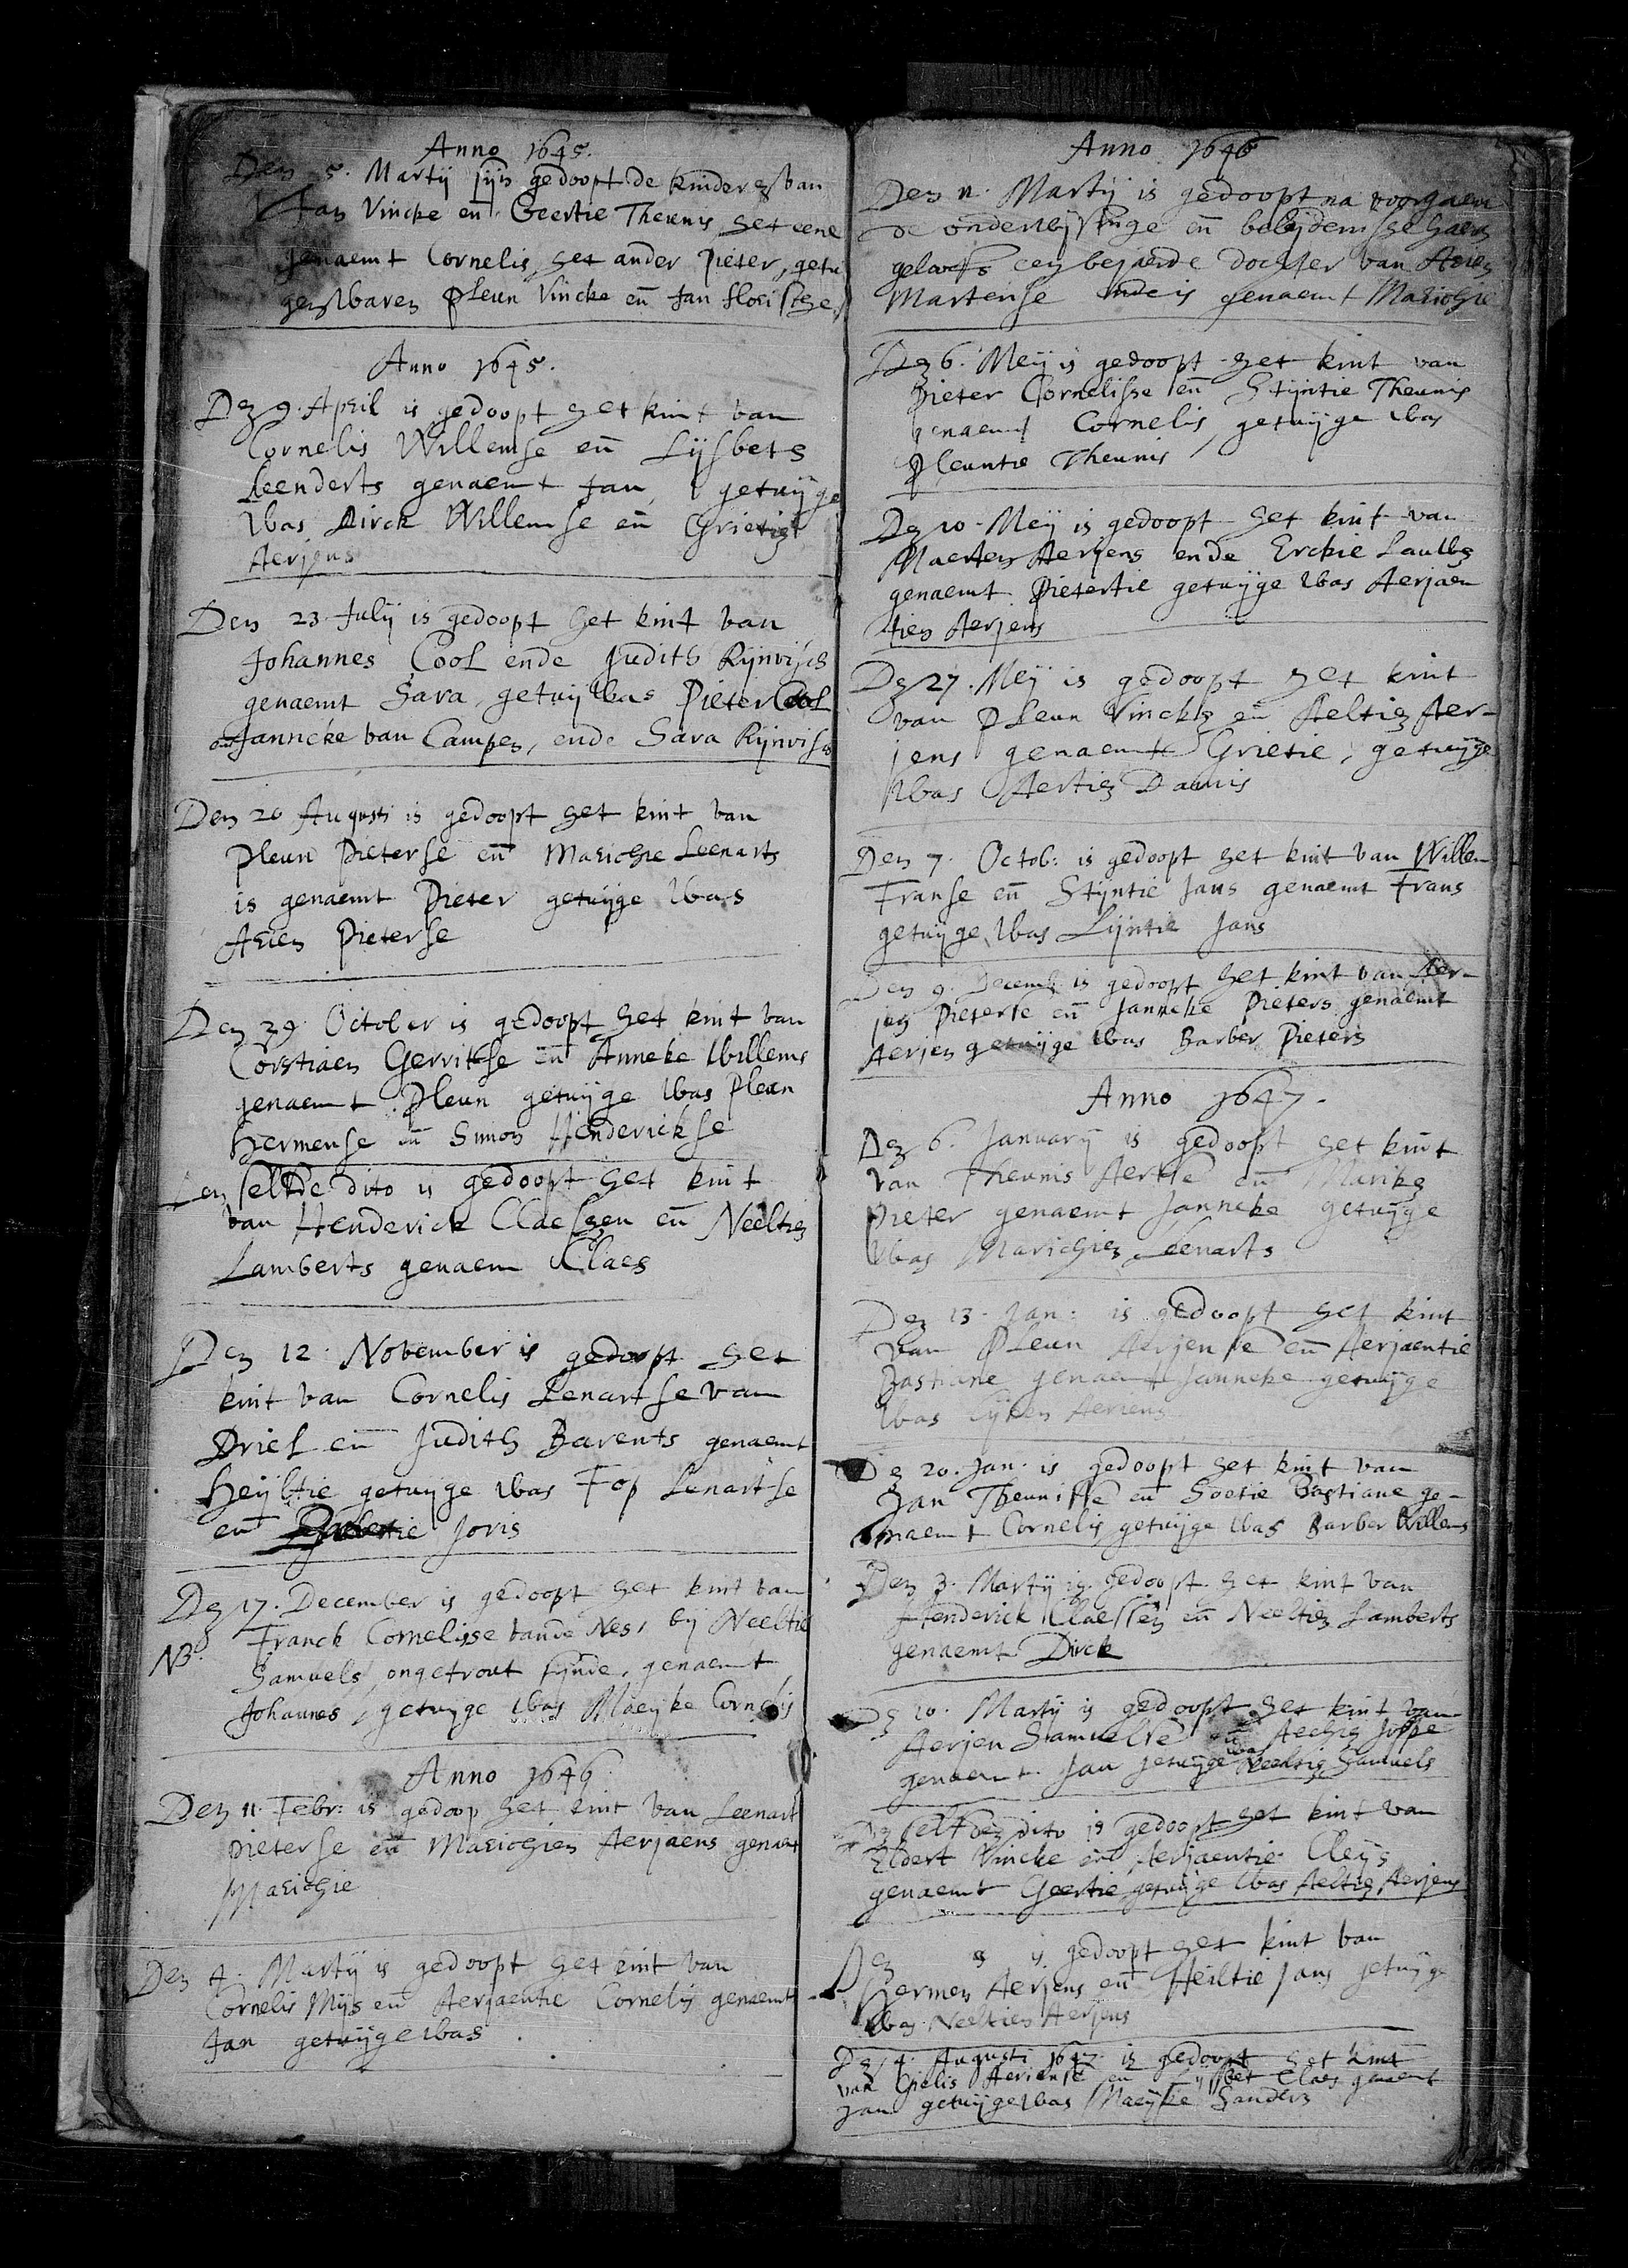 Anno 1645.
Den 5. Martij sijn gedoopt de kinderen van
Jan Vincke en Geertie Theunis het eene
genaemt Cornelis, het ander Pieter, getui
gen waren Pleun Vincke en Jan
Anno 1645.
Den 9. April is gedoopt het kint van
Cornelis Willemse en Lijsbeth
Leenderts genaemt Jan, getuijge
was Dirck Willemse en Grietien
Aerjens
Den 23 Julij is gedoopt het kint van
Johannes Cool ende Judith Rijnvisch
genaemt Sara, getuij was Pieter Cool
en Janneke van Campen, ende Sara Rijnvisch
Den 20 Augusti is gedoopt het kint van
Pleun Pieterse en Marichie Leenarts
is genaemt Pieter getuijge was
Arien Pieterse
Den 29 October is gedoopt het kint van
Corstiaen Gerritse en Anneke Willems
genaemt Pleun getuijge was Pleun
Hermense en Simon Henderickse
Den selfde dito is gedoopt het kint
van Henderick Claessen en Neeltien
Lamberts genaem Claes
Den 12. November is gedoopt het
kint van Cornelis Lenartse van
Driel en Judith Barents genaemt
Heijltie getuijge was Fop Lenartse
en Joris
Den 17. December is gedoopt het kint van
NB. Franck Cornelisse vande Nes, bij Neeltie
Samuels, ongetrout sijnde, genaemt
Johannes, getuijge was Maeijke Cornelis
Anno 1646
Den 11. Febr: is gedoop het kint van Leenart
Pieterse en Marichien Aerjaens genaemt
Marichie
Den 4. Martij is gedoopt het kint van
Cornelis Mijs en Aerjaentie Cornelis genaemt
Jan getuijge was
Anno 1646
Den 11. Martij is gedoopt na voorgaen
de onderwijsinge en belijdenisse haers
geloofs een bejaerde dochter van Arien
Martense ende is genaemt Marichie
Den 6. Meij is gedoopt het kint van
Pieter Cornelisse en Stijntie Theunis
genaemt Cornelis, getuijge was
Pleuntie Theunis
Den 10. Meij is gedoopt het kint van
Maerten Aerjens ende Erckie Lauwen
genaemt Pietertie getuijge was Aerjaen
tien Aerjens
Den 27. Meij is gedoopt het kint
van Pleun Vincken en Aeltien Aer-
jens genaemt Grietie, getuijge
was Aertien Dames
Den 7. Octob: is gedoopt het kint van Willem
Franse en Stijntie Jans genaemt Frans
getuijge was Lijntie Jans
Den 9. Decemb is gedoopt het kint van Aer-
jen Pieterse en Janneke Pieters genaemt
Aerjen getuijge was Barber Pieters
Anno 1647.
Den 6. Januarij is gedoopt het kint
van Theunis Aertse en Marike
Pieter genaemt Janneke getuijge
was Marichien Leenarts
Den 13. Jan: is gedoopt het kint
van Pleun Aerjense en Aerjaentie
Bastiane genaemt Janneke getuijge
was Aeriens
Den 20. Jan. is gedoopt het kint van
Jan Theunisse en Soetie Bastiane ge-
naemt Cornelis getuijge was Barber Willems
Den 3. Martij is gedoopt het kint van
Henderick Claessen en Neeltien Lamberts
genaemt Dirck
Den 10. Martij is gedoopt het kint van
Aerjen Samuelse en Aechie Joppe
genaemt Jan getuijge was Neeltien Samuels
Den selfden dito is gedoopt het kint van
Eldert Vincke en Aerjaentie Cleijs
genaemt Geertie getuijge was Aeltien Aerjens
Den is gedoopt het kint van
Hermen Aerjens en Heiltie Jans getuijge
was Neeltien Aerjens
Den 4. Augusti 1647 is gedoopt het kint
van Gielis Aerjense en Lijsbet Claes genaemt
Jan getuijge was Maeijke Sanders